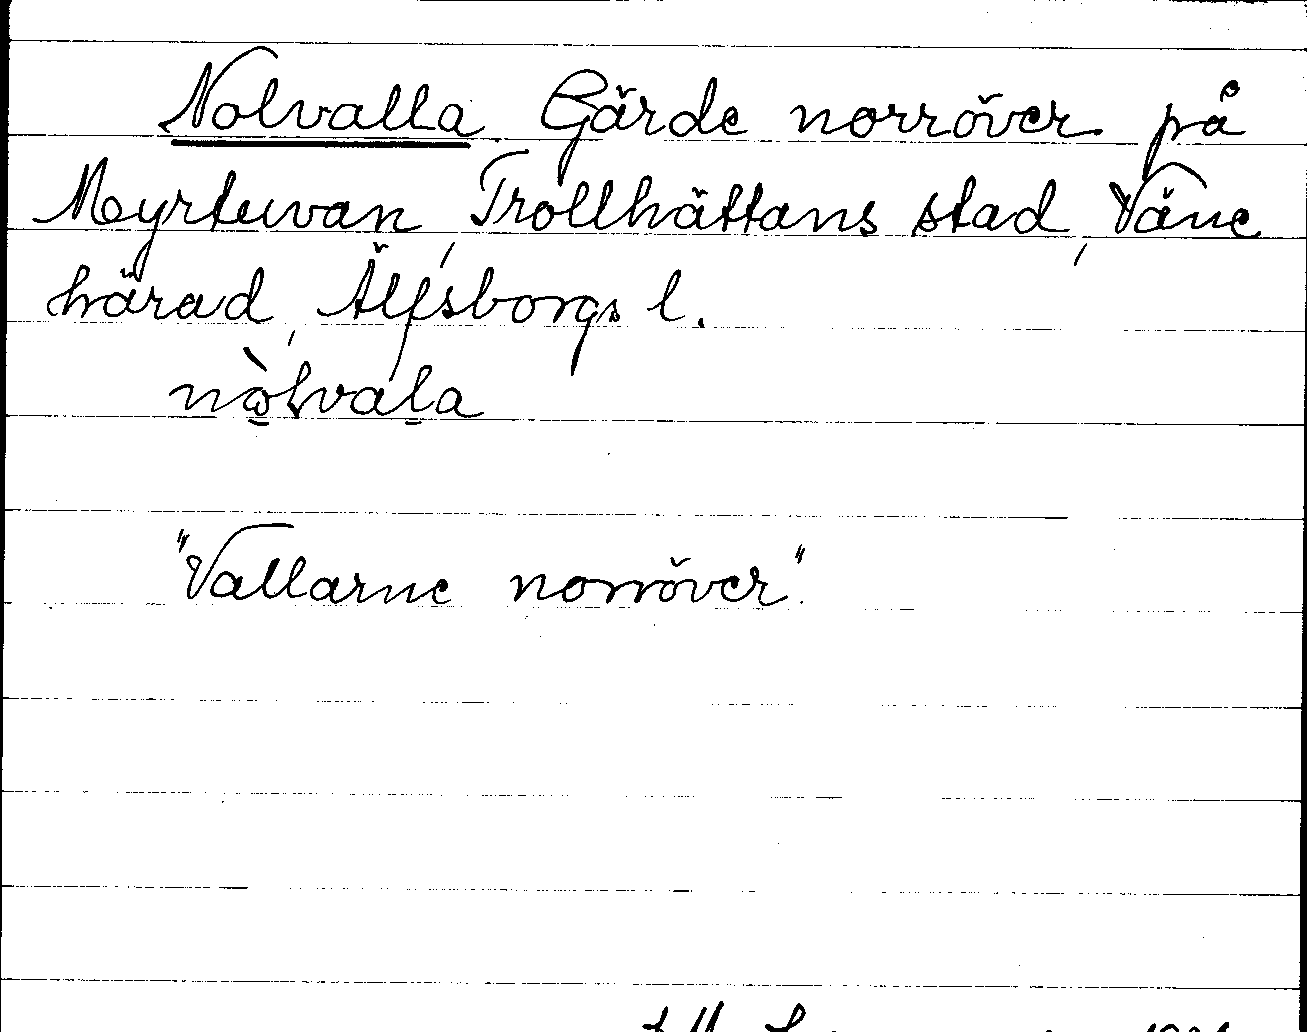 Nolvalla Gärde norröver på
Myrtuvan, Trollhättans stad, Väne
härad, Älfsborgs l.
nòlvala
"Vallarne norröver".